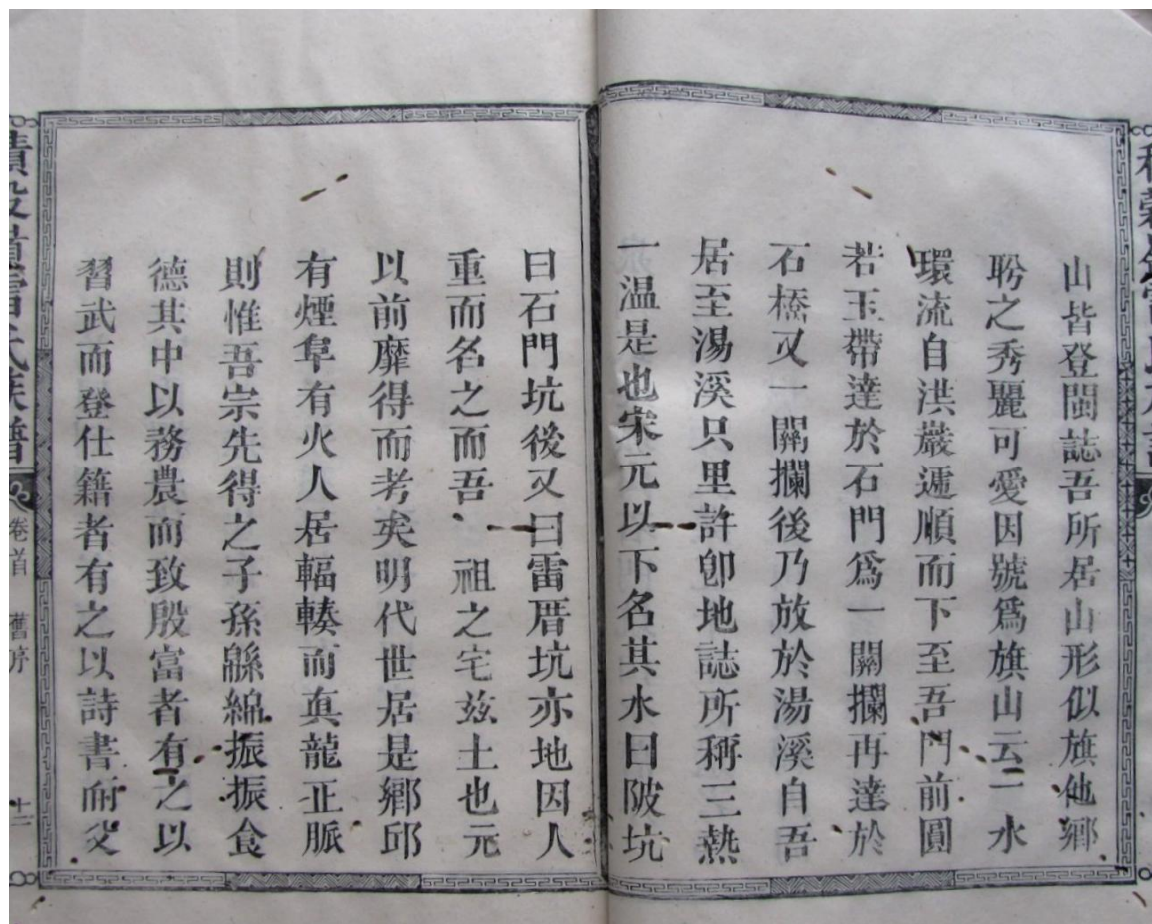 山皆登閩誌吾所居山形似旗他鄉
聆之秀麗可愛因號爲旗山云一水
環流自洪巖遞順而下至吾門前圓
若玉帶達於石門爲一關攔再達於
石橋又一關攔後乃放於湯溪自吾
居至湯溪只里許卽地誌所稱三熱
一温是也宋元以下名其水曰陂坑
曰石門坑後又曰雷厝坑亦地因人
重而名之而吾 祖之宅玆土也元
以前靡得而考矣明代世居是鄉邱
有煙阜有火人居輻輳而眞龍正脈
則惟吾宗先得之子孫緜綿振振食
德其中以務農而致殷富者有之以
習武而登仕籍者有之以詩書而父
氏族譜
卷首 舊序
十二